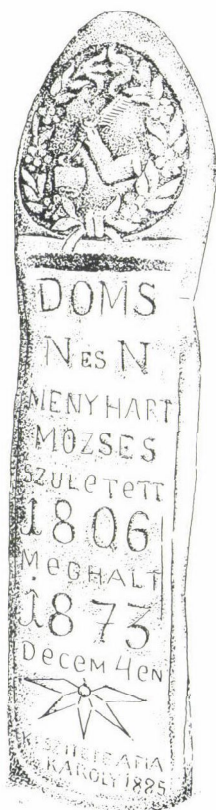 DOMS
N es N
MENYHART
MOZSES
SZULeTETT
1806
MeGHALT
1873
DeceM 4eN
KESZITETE AFIA
KAROLY 1885